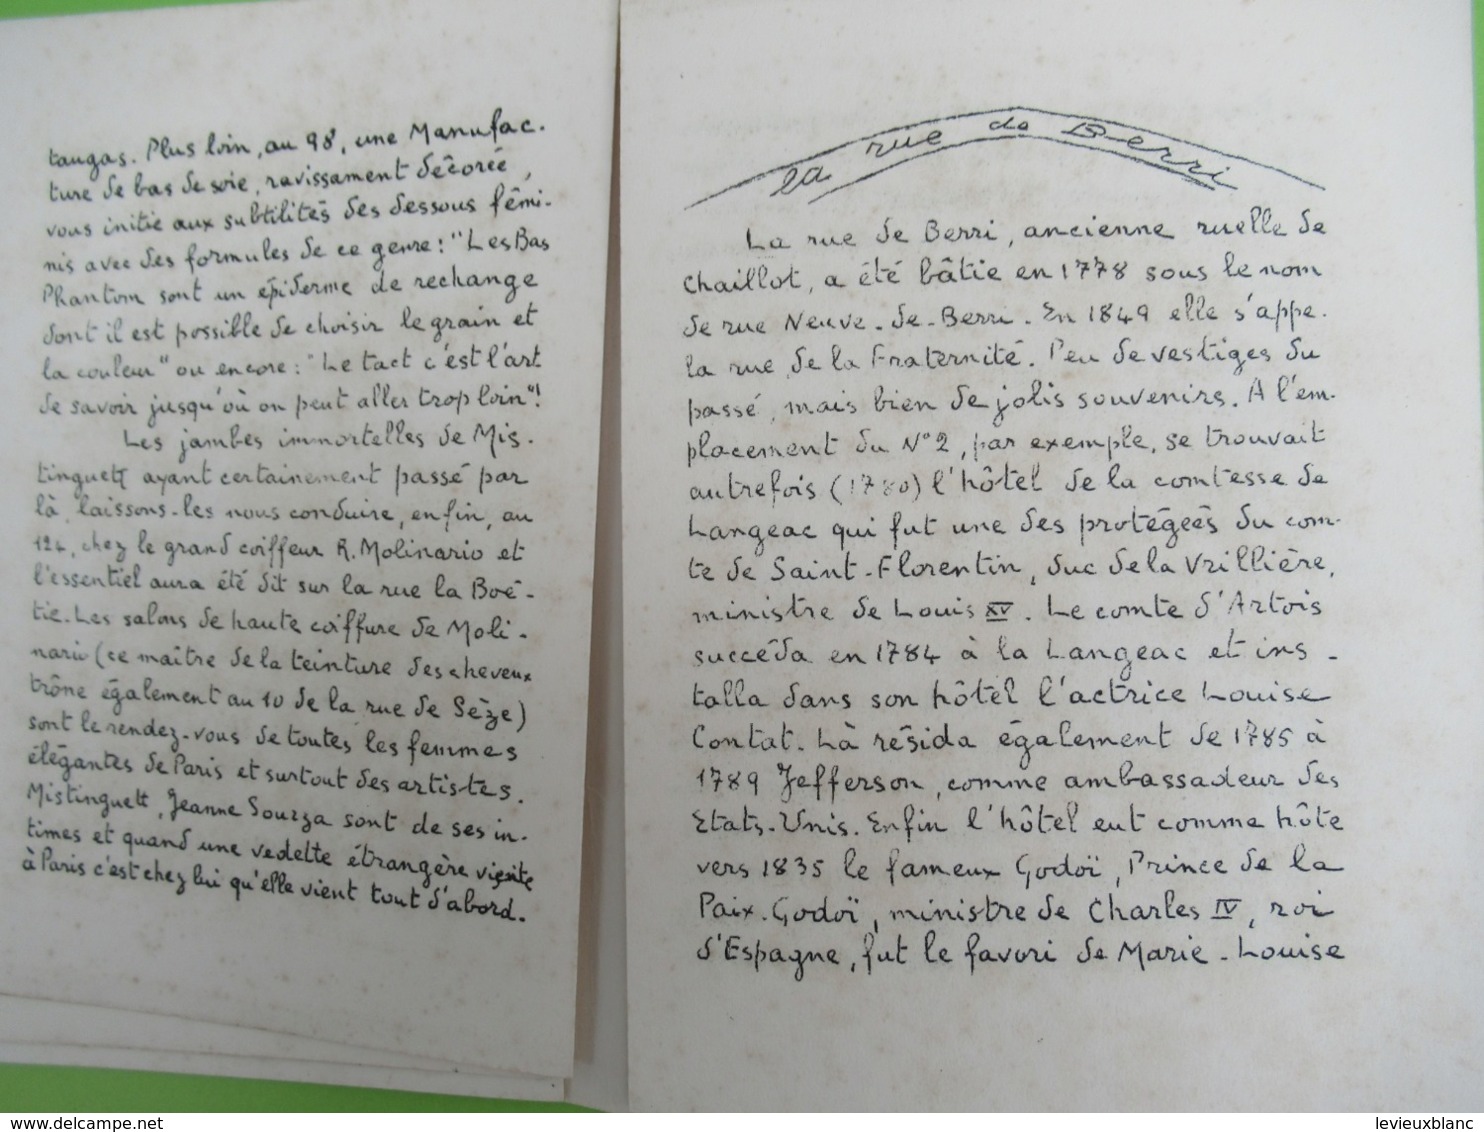 taugas. Plus loin, au 98, une Manufac.
ture de bas de soie, ravissament décorée,
vous initie aux subtilités des dessous fémi-
nis avec des formules de ce genre : "Les Bas
Phantom sont un épiderme de rechange
dont il est possible de choisir le grain et
la couleur" ou encore : "Le tact c'est l'art
de savoir jusqu'où on peut aller trop loin"!
Les jambes immortelles de Mis-
tinguett ayant certainement passé par
là, laissons-les nous conduire, enfin, au
124, chez le grand coiffeur R. Molinario et
l'essentiel aura été dit sur la rue la Boé-
tie. Les salons de haute coiffure de Moli-
nario (ce maître de la teinture des cheveux
trône également au 10 de la rue de Sèze)
sont le rendez-vous de toutes les femmes
élégantes de Paris et surtout des artistes.
Mistinguett, Jeanne Sourza sont de ses in-
times et quand une vedette étrangère visite
à Paris c'est chez lui qu'elle vient tout d'abord.
la rue de Berri
La rue de Berri, ancienne ruelle de
Chaillot, a été bâtie en 1778 sous le nom
de rue Neuve-de-Berri. En 1849 elle s'appe.
la rue de la Fraternité. Peu de vestiges du
passé, mais bien de jolis souvenirs. A l'em-
placement du N° 2, par exemple, se trouvait
autrefois (1780) l'hôtel de la comtesse de
Langeac qui fut une des protégées du com-
te de Saint-Florentin, duc de la Vrillière,
ministre de Louis XV. Le comte d'Artois
succéda en 1784 à la Langeac et ins-
talla dans son hôtel l'actrice Louise
Contat. Là résida également de 1785 à
1789 Jefferson, comme ambassadeur des
Etats-Unis. Enfin l'hôtel eut comme hôte
vers 1835 le fameux Godoï, Prince de la
Paix. Godoï, ministre de Charles IV, roi
d'Espagne, fut le favori de Marie-Louise
https://www.delcampe.net
levieuxblanc